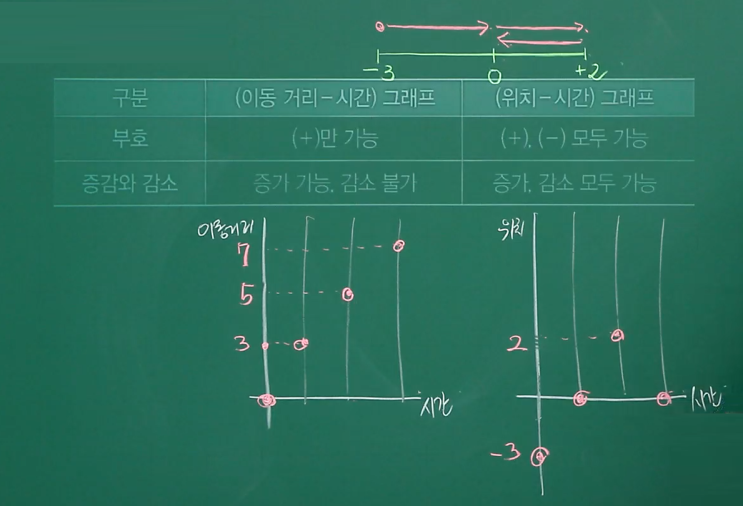 -3 0 +2
구분 (이동 거리-시간) 그래프 (위치-시간) 그래프
부호 (+)만 가능 (+), (-) 모두 가능
증감와 감소 증가 가능, 감소 불가 증가, 감소 모두 가능
이동거리
7
5
3
시간
위치
2
시간
-3